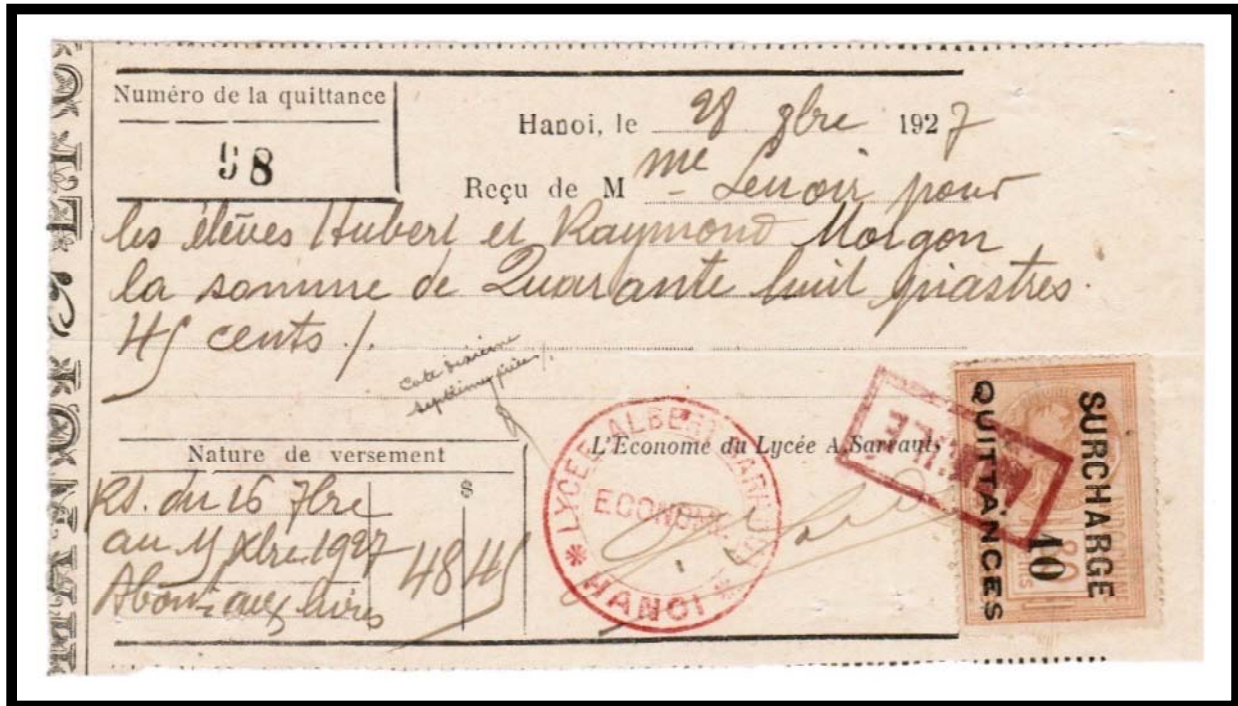 Numéro de la quittance
98
Hanoi, le 28 8bre 1927
Reçu de M me Lenoir pour
les élèves Hubert et Raymond Morgon
la somme de Quarante huit piastres
45 cents /.
Nature de versement
$
du 16 7bre
au xbre 1927
48 45
Abont aux livres
L'Econome du Lycée A. Sarraut
LYCÉE ALBERT SARRAUT
ECONOM
* HANOI *
SURCHARGE
10
QUITTANCES